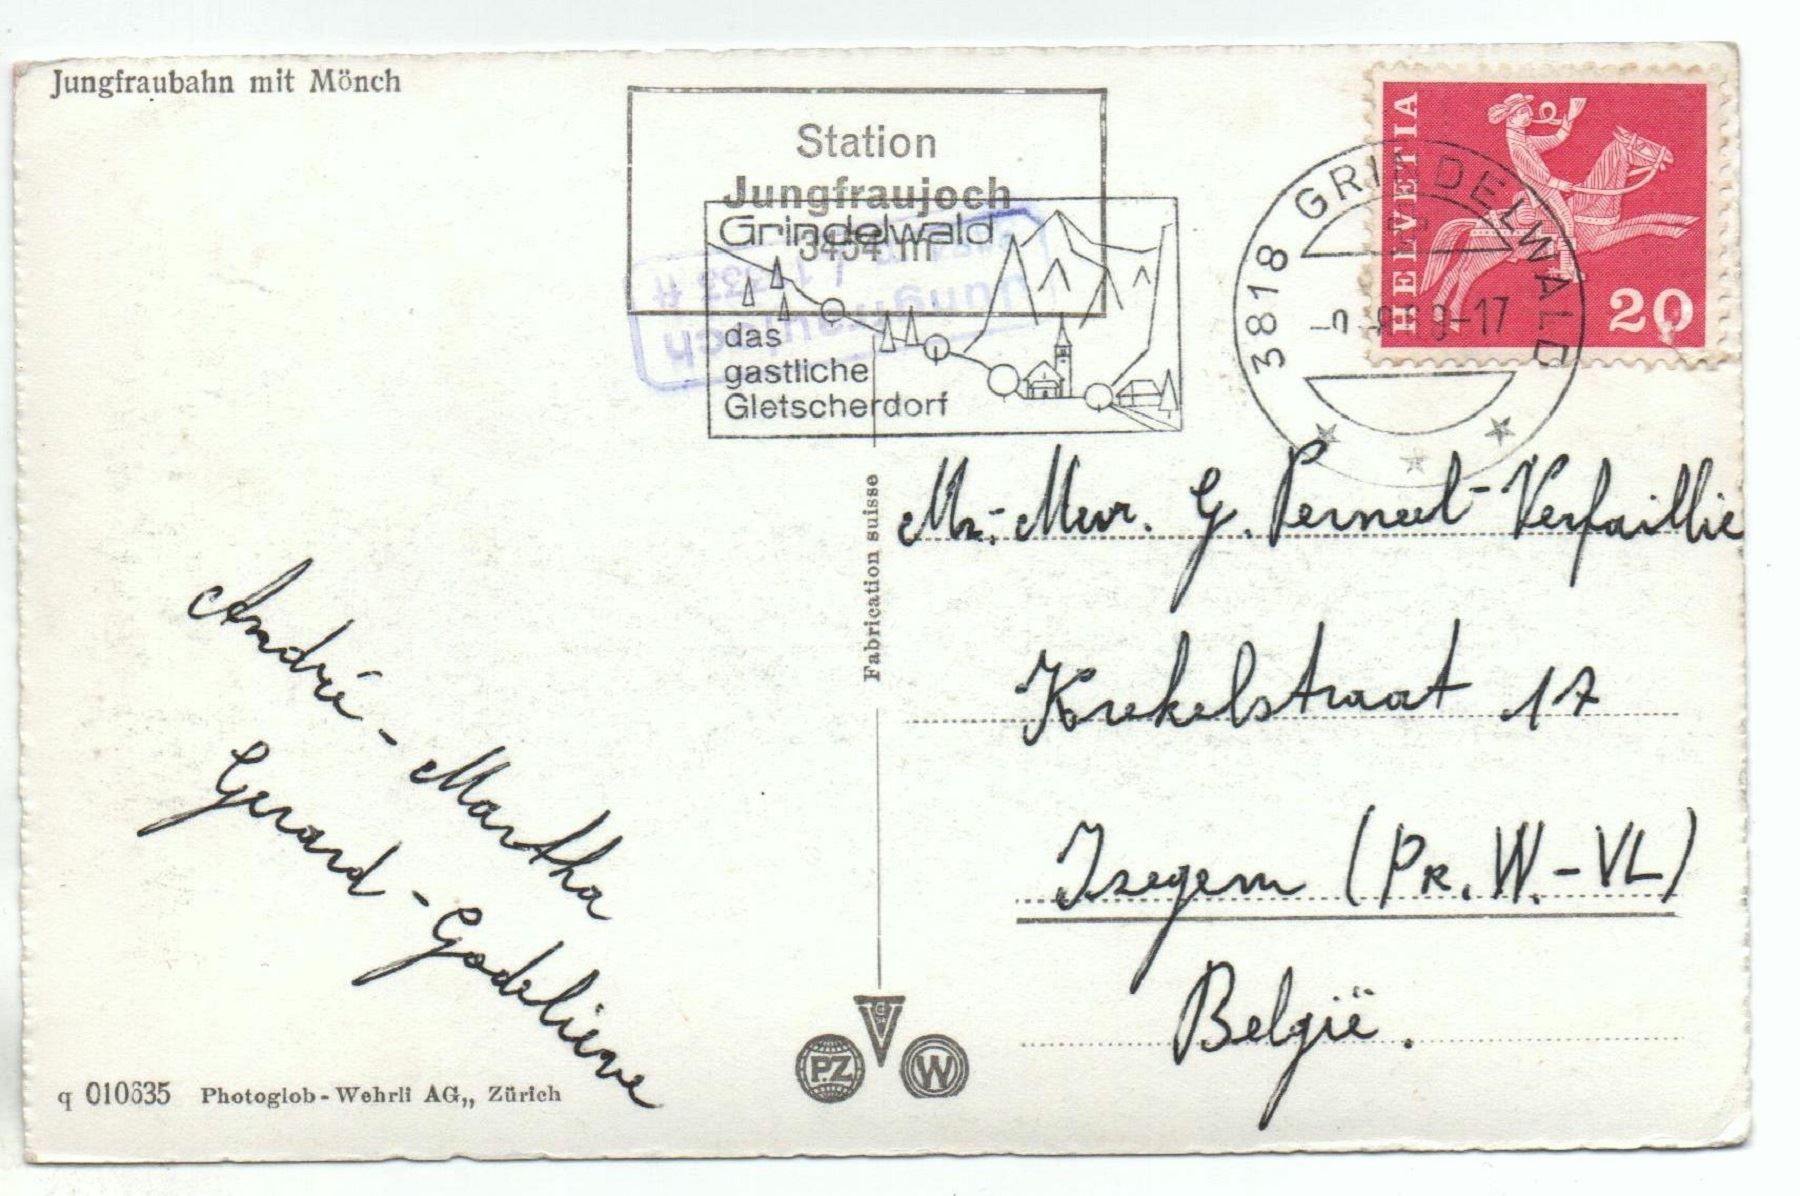 Jungfraubahn mit Mönch
Station
Jungfraujoch
3454 m
Grindelwald
das
gastliche
Gletscherdorf
Jungfraujoch
3818 GRINDELWALD
-17
HELVETIA
20
Mr.-Mevr. G. Perneel-Verfaillie
Krekelstraat 17
Izegem (PR. W.-VL)
België.
André - Martha
Gerard - Godelieve
Fabrication suisse
P.Z
W
q 010635 Photoglob-Wehrli AG,, Zürich